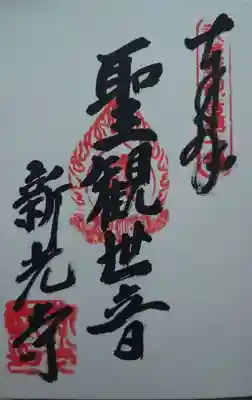 奉拝
聖観世音
新光寺